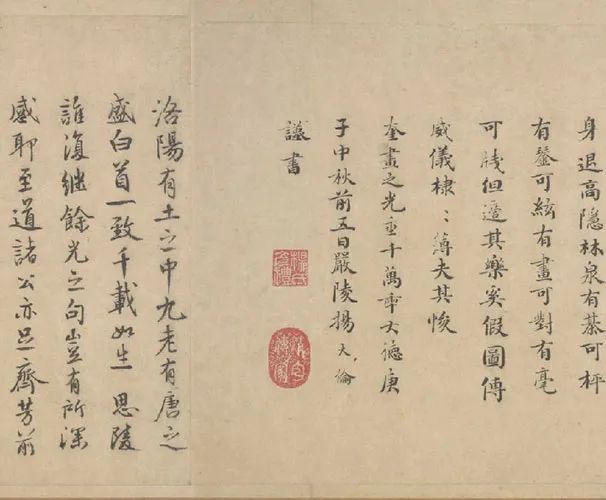 身退高隱林泉有棊可枰
有琴可絃有畫可對有毫
可牋但適其樂奚假圖傳
威儀棣〻薄夫其悛
奎畫之光垂千萬年大德庚
子中秋前五日嚴陵揚大倫
議書
洛陽有土之中九老有唐之
盛白首一致千載如生思陵
誰復繼餘光之句豈有所深
感耶至道諸公亦足齊芳前